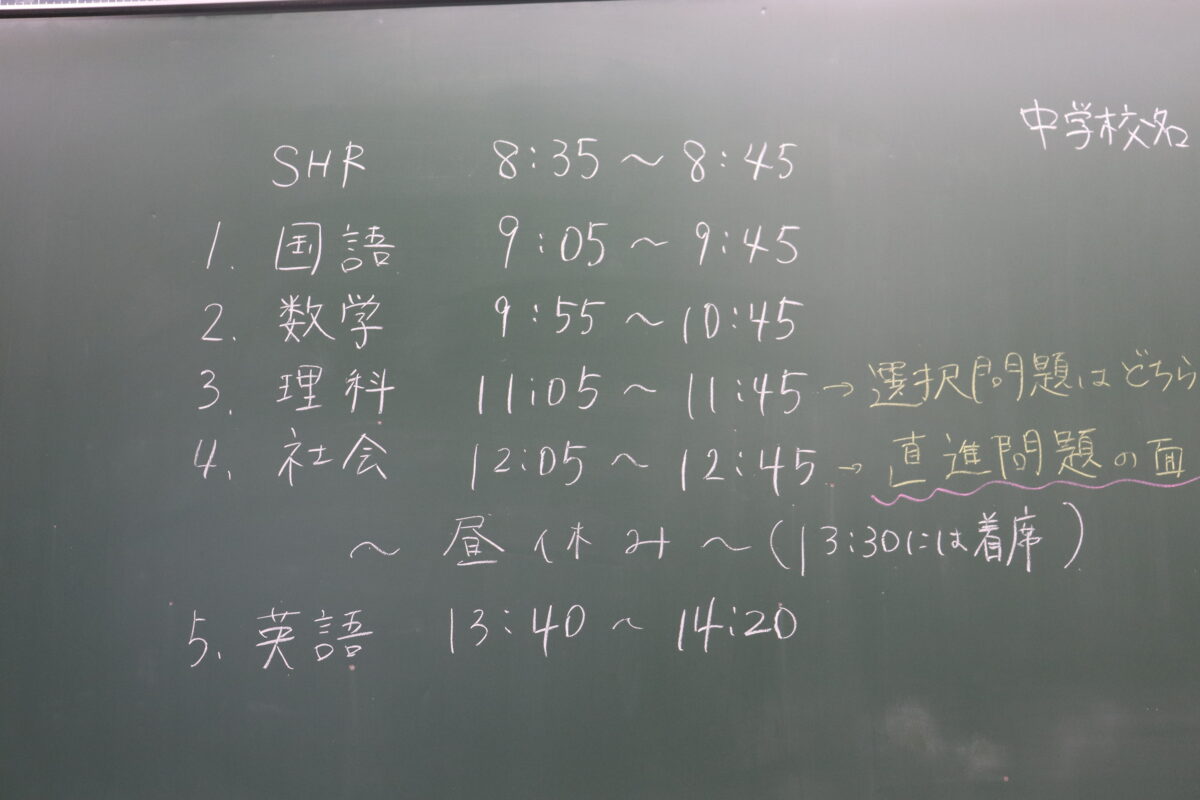 中学校名
SHR 8:35〜8:45
1. 国語 9:05〜9:45
2. 数学 9:55〜10:45
3. 理科 11:05〜11:45→選択問題はどちら
4. 社会 12:05〜12:45→直進問題の面
〜昼休み〜(13:30には着席)
5. 英語 13:40〜14:20